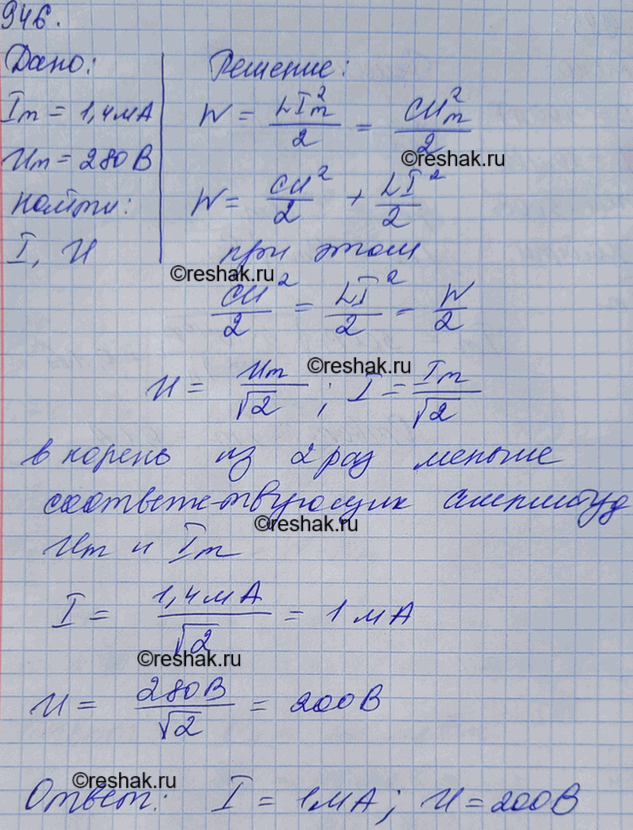 946.
Дано:
Решение:
Im = 1,4 мА
W = LIm²/2 = CUm²/2
©reshak.ru
Um = 280 В
W = CU²/2 + LI²/2
Найти:
I, U
при этом
©reshak.ru
CU²/2 = LI²/2 = W/2
©reshak.ru
U = Um/√2 ; I = Im/√2
в корень из 2 раз меньше
соответствующих амплитуд
©reshak.ru
Um и Im
I = 1,4 мА/√2 = 1 мА
©reshak.ru
U = 280 В/√2 = 200 В
©reshak.ru
Ответ: I = 1 мА; U = 200 В